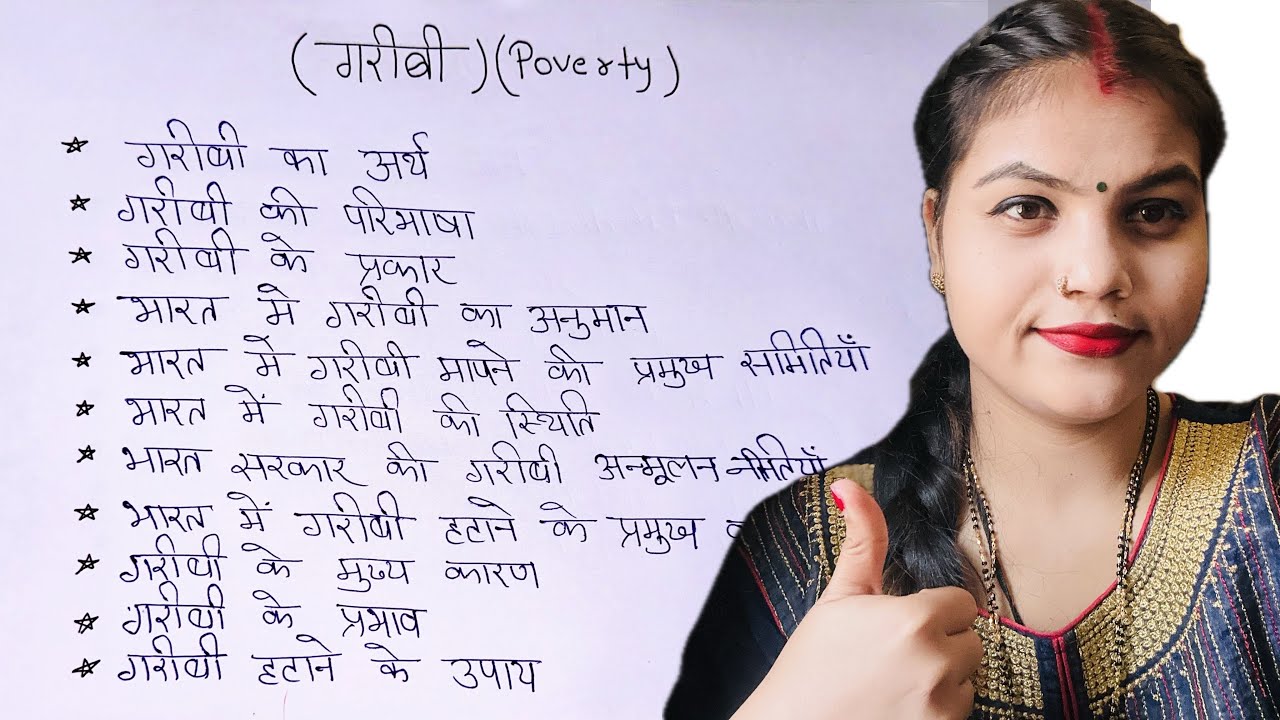 (गरीबी) (Poverty)
☆ गरीबी का अर्थ
☆ गरीबी की परिभाषा
☆ गरीबी के प्रकार
☆ भारत मे गरीबी का अनुमान
☆ भारत में गरीबी मापने की प्रमुख समितियाँ
☆ भारत में गरीबी की स्थिति
☆ भारत सरकार की गरीबी अन्मूलन नीतियाँ
☆ भारत में गरीबी हटाने के प्रमुख
☆ गरीबी के मुख्य कारण
☆ गरीबी के प्रभाव
☆ गरीबी हटाने के उपाय